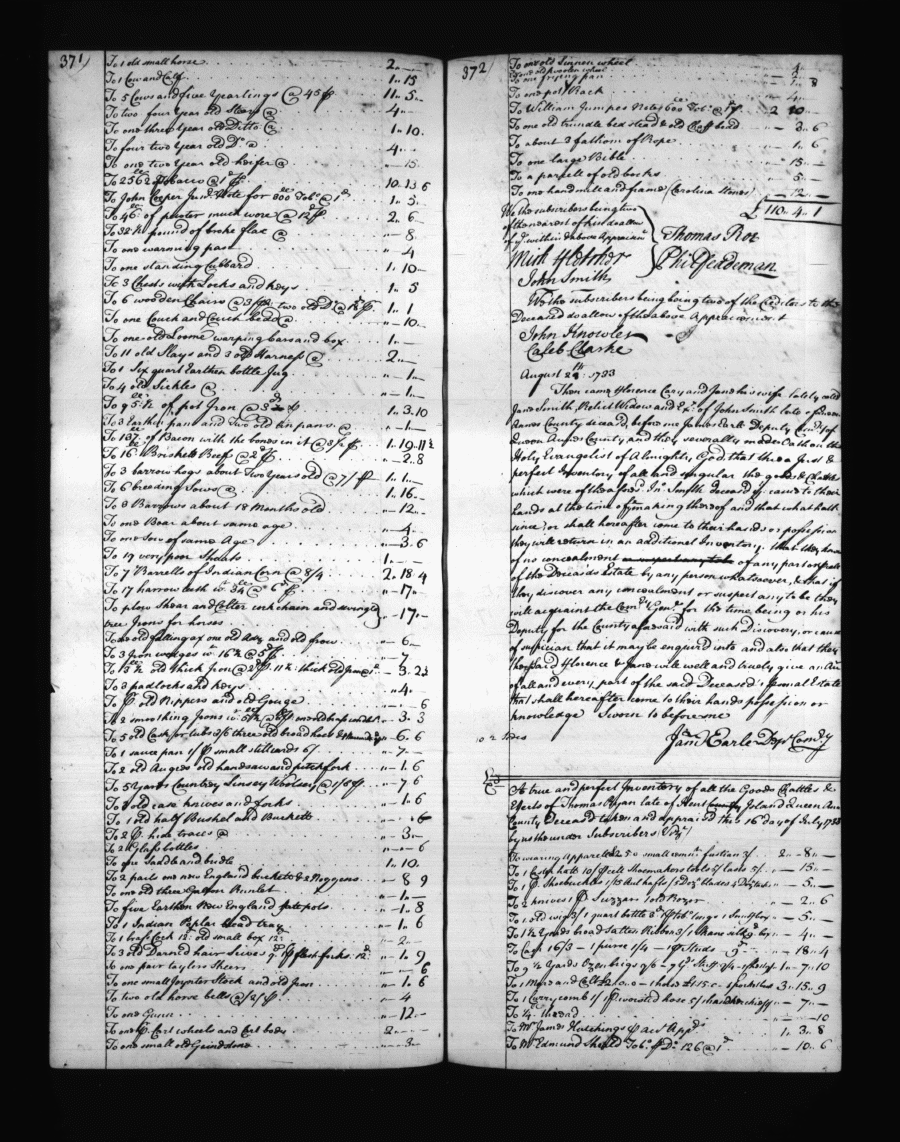 371
To 1 old small horse 2 " — " —
To 1 Cow and Calf 1 " 15
To 5 Cows and five Yearlings @ 45/ 11 " 5 " —
To two four Year old Steers @ 4 " — " —
To one three Year old Ditto @ 1 " 10 "
To four two Year old Do @ 4 " —
To one two Year old heifer @ " — 15
To 2562 Tobacco @ 1d 10 " 13 " 6
To John Cooper Junr Note for 300 Tobo @ 1d 1 " 5 " —
To 46 of pewter much wore @ 12d 2 " 6 " —
To pound of broke flax @ " — 8
To one warming pan " — 4
To one standing Cubbard 1 " 10 —
To 3 Chests with Locks and keys 1 " 5
To 6 wooden Chairs @ 3/ two old 1 " 1
To one Couch and Couch bedd @ " — 10 —
To one old Loome warping bars and box 1 " —
To 11 old Slays and 3 old Harness @ 2 " —
To 1 six quart Earthen bottle Jug " — 1 —
To 4 old Sickles @ " — 1 —
To 95 ½ of pot Iron @ 3d 1 " 3 " 10
To 3 Earthen pans and Two old tin pans @ " — 1 —
To 137 of Bacon with the bones in it @ 3 ½ 1 " 19 " 11 ½
To 16 Briskett Beef @ 2d " — 2 " 8
To 3 barrow hogs about Two Years old @ 7/ 1 " 1 " —
To 6 breeding Sows @ 1 " 16 " —
To 8 Barrows about 18 Months old " — 12 " —
To one Boar about same age " — 4 —
To one Sow of same Age " — 3 " 6
To 19 very poor Shoats 1 " — —
To 7 Barrells of Indian Corn @ 8/4 2 " 18 " 4
To 17 harrow teeth wt 34 @ 6d " — 17 " —
To plow Shear and Colter cock chain and swingle
tree Irons for horses " — 17 " —
To one old falling ax one old Adz and old frow " — 6 —
To 3 Iron wedges wt 16 ½ @ 5d " — 7 —
To 13 ½ old thick Iron @ 2d 11 ½ thick old Iron @ " — 3 "
To 3 padlocks and keys " — 4 "
To 1 pr old Nippers and old Gouge " — " — 6
To 2 smoothing Irons one old brass " — 3 " 3
To 5 old Cask or tubs 3/6 three old broad hoes & " — 6 " 6
To 1 sauce pan 1/ pr small stillards 6/ " — 7 —
To 2 old Augers old handsaw and pitchfork " — 1 " 6
To 5 Yards Country Linsey Woolsey @ 1/6 " 7 " 6
To 3 old case knives and forks " — 1 " 6
To 1 old half Bushel and Buckett " — 6
To 2 pr hide traces @ " — 3 —
To 2 Glass bottles " — " — 6
To one Saddle and bridle 1 " 10 "
To 2 parts one new England buckets & 2 Noggens " — 8 9
To one old three Gallon Runlet " — 1 —
To five Earthen New England pots " — 1 " 8
To 1 Indian Poplar bread tray " — 1 " 6
To 1 brass Cock 12d old small box 12d " — 2 —
To 3 old Darnd hair Sives 9d 1 pr flesh forks 12d " — 1 " 9
To one pair taylors Sheers " — " — 6
To one small Joynter Stock and old Iron " — 1 " 6
To two old horse bells @ 2/ " — 4
To one Gunn " — 12 —
To one pr Cart wheels and Cart body 2 " — " —
To one small old Grindstone " — 3 "
372
To one old Linnen wheel " — 4 "
To one old woolen wheel
To one frying pan — 1 " 8
To one pot Rack — 4 —
To William Jumps Note 600 Tobo @ 1d 2 " 10 —
To one old trundle bed stead & old Chaff bedd — 3 " 6
To about 3 fathom of Rope — 1 " 6
To one large Bible " — 15 " —
To a parsell of old books " — 5 " —
To one hand mill and frame (Carolina Stones) — 12 —
£ 110 " 4 " 1
We the subscribers being two
of the nearest of kin do allow
of ye within & above Appraismt
Thomas Roe
John Smith
We the subscribers being being two of the Creditors to the
Deceased do allow of the above Appraisement
John Knowles
Caleb Clarke
August 24th: 1733
Then came Florence Cary and Jane his wife lately calld
Jane Smith Relict Widow and Exx of John Smith late of Queen
Annes County deceasd, before me James Earle Deputy Comry of
Queen Annes County and they severally made Oath on the
Holy Evangelist of Allmighty God, that the a Just &
perfect Inventory of all and singular the goods & Chattels
which were of the aforesd Jno Smith deceased yt came to their
hands at the time of making thereof and that what hath
since or shall hereafter come to their hands or possession
they will return in an additional Inventory; that they know
of no concealment of any part or parcell
of the Deceasds Estate by any person whatsoever, & that if
they discover any concealment or suspect any to be they
will acquaint the Comry Genl for the time being or his
Deputy for the County aforesaid with such Discovery, or cause
of suspicion that it may be enquird into and also that they
the said Florence & Jane will well and truely give an Acct
of all and every part of the said Deceased's personal Estate
that shall hereafter come to their hands possession or
knowledge Sworn to before me
10. 2 Sides
Jams Earle Depy Comry
A true and perfect Inventory of all the Goods Chattles &
Effects of Thomas Ryan late of Kent Island Queen Ann
County Deceasd taken and appraisd this 16 day of July 1733
by us the under Subscribers Vizt
To wearing Apparell small remnt fustian 3/ 2 " — 8 " —
To 1 Castr hatt 10/ sett Shoemakers tools 5/ lasts 5/ " — 15 " —
To 1 pr Shoebuckles 1/ Aul hafts blades " — 5 " —
To 2 knives 1 pr Sizzars 1 old Razor " — 2 " 6
To 1 old wig 3/ 1 quart bottle 1 Snuffbox " — 5 " —
To 1 ½ Yards broad Sattin Ribbon 3/ 1 Skane silk 9d " — 4 " —
To Cash 16/3 — 1 piece 1/4 — 1 pr Studs 9d " — 18 " 4
To 9 ½ Yards Ozenbrigs 9/6 — 1 " — 7 " 10
To 1 Mare and Colt £2.0.0 — 1 horse £1.15.0 — 3 " 15 " 9
To 1 Currycomb 1/ pr worsted hose 5/ 1 handkerchieff " — 7 " —
To ¼ thread " — " — 10
To Mr James Hutchings pr acct Appd 1 " 3 " 8
To Mr Edmund Tobo pr Do 126 @ 1d " — 10 " 6